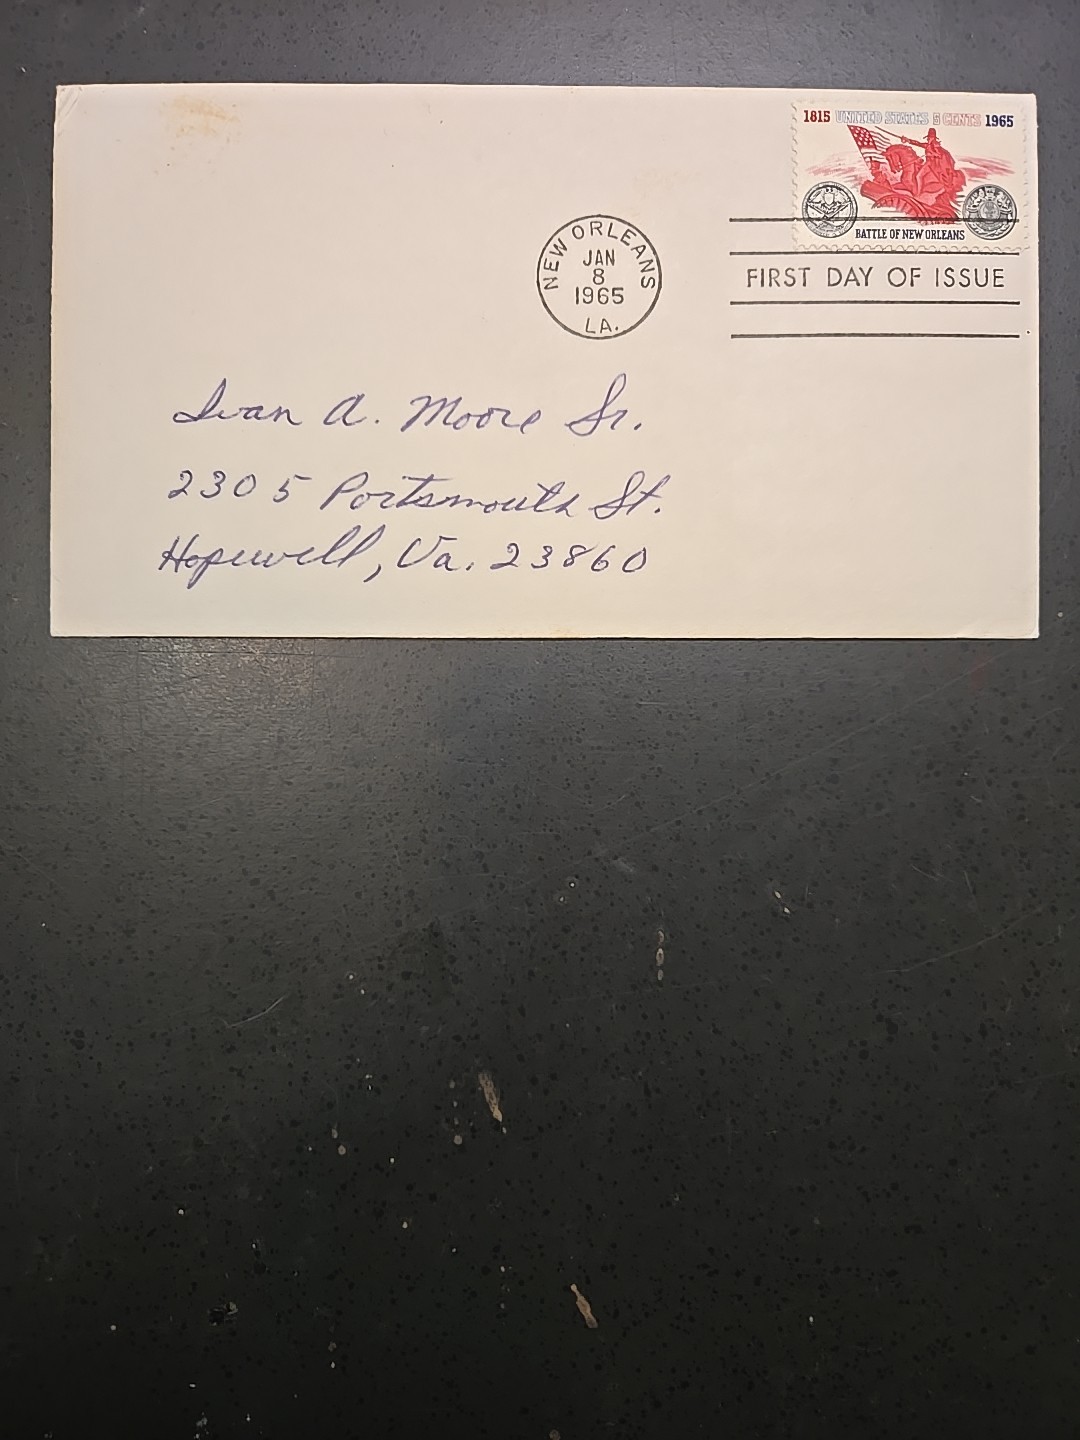 1815 UNITED STATES 5 CENTS 1965
BATTLE OF NEW ORLEANS
NEW ORLEANS
JAN
8
1965
LA.
FIRST DAY OF ISSUE
Ivan A. Moore Sr.
2305 Portsmouth St.
Hopewell, Va. 23860